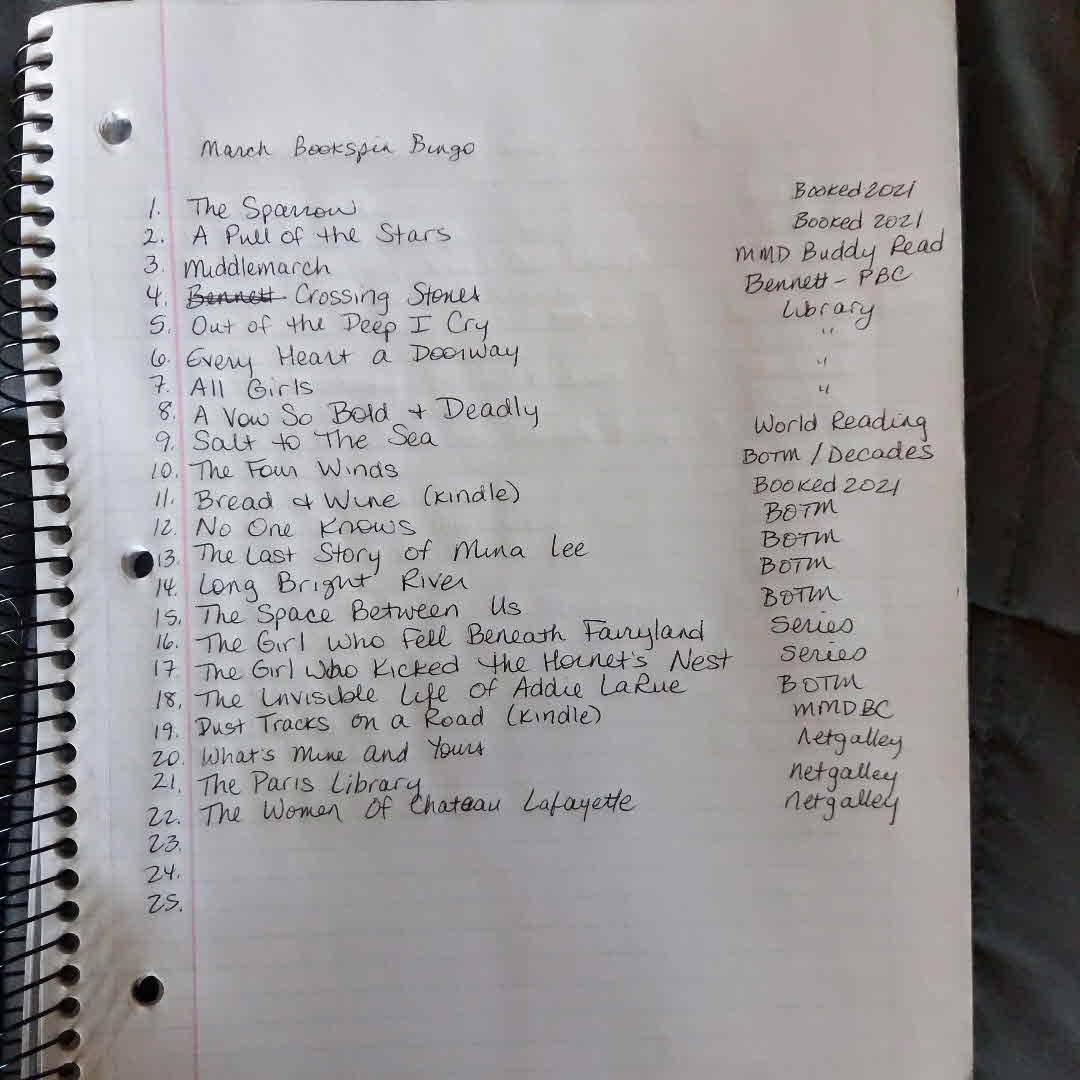 March Bookspin Bingo
1. The Sparrow Booked 2021
2. A Pull of the Stars Booked 2021
3. Middlemarch MMD Buddy Read
4. Bennett Crossing Stones Bennett - PBC
5. Out of the Deep I Cry Library
6. Every Heart a Doorway "
7. All Girls "
8. A Vow So Bold + Deadly "
9. Salt to The Sea World Reading
10. The Four Winds BOTM / Decades
11. Bread & Wine (Kindle) Booked 2021
12. No One Knows BOTM
13. The Last Story of Mina Lee BOTM
14. Long Bright River BOTM
15. The Space Between Us BOTM
16. The Girl Who Fell Beneath Fairyland Series
17. The Girl Who Kicked the Hornet's Nest Series
18. The Invisible Life of Addie LaRue BOTM
19. Dust Tracks on a Road (Kindle) MMDBC
20. What's Mine and Yours Netgalley
21. The Paris Library netgalley
22. The Women Of Chateau Lafayette netgalley
23.
24.
25.